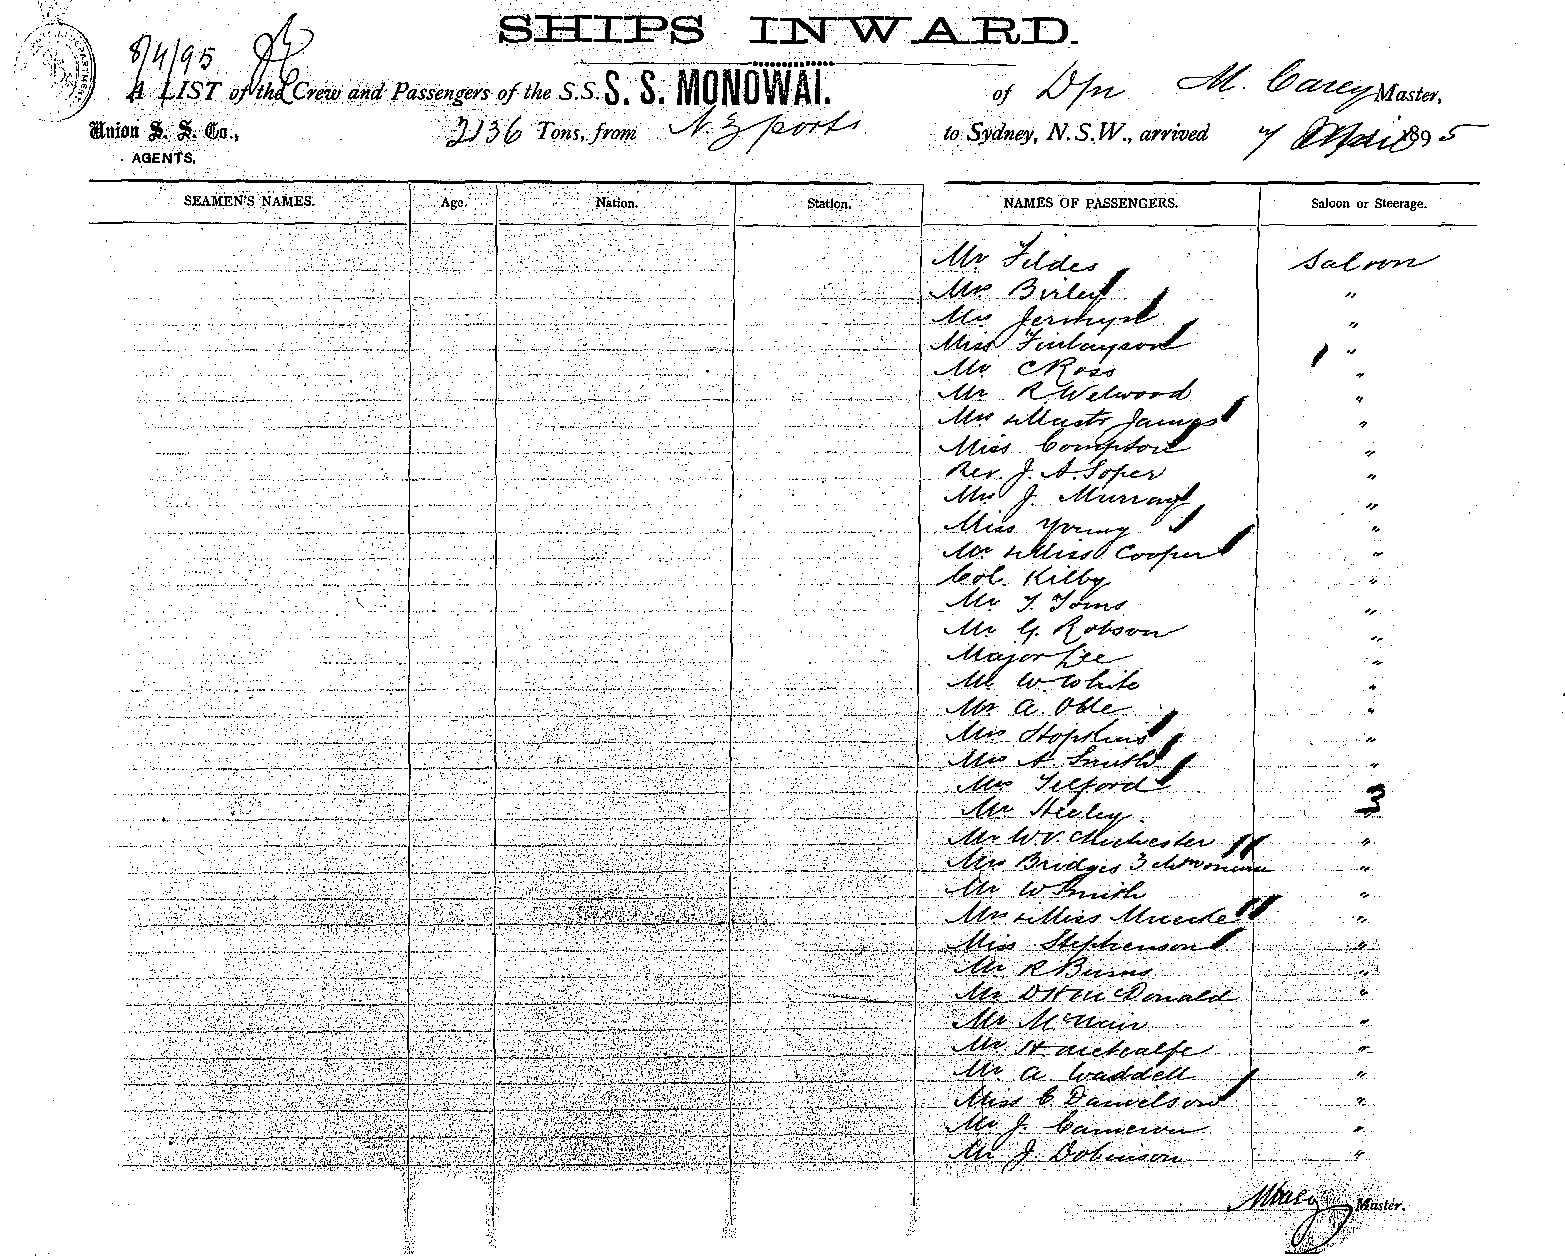 SHIPS INWARD.
8/4/95
A LIST of the Crew and Passengers of the S.S. S. S. MONOWAI. of Dpn M. Carey Master,
Union S. S. Co., 2136 Tons, from N. Z ports to Sydney, N.S.W., arrived 7 April 1895
AGENTS,
SEAMEN'S NAMES. Age. Nation. Station. NAMES OF PASSENGERS. Saloon or Steerage.
Mr Fildes Saloon
Mrs Birley "
Mrs Jermyn "
Miss Finlayson "
Mr C Ross "
Mr R Welwood "
Mrs & Mastr James "
Miss Compton "
Rev. J. A. Soper "
Mrs J. Murray "
Miss Young "
Mr & Miss Cooper "
Col. Kilby "
Mr T. Toms "
Mr G. Robson "
Major Lee "
Mr W. White "
Mr A. "
Mrs Hopkins "
Mrs A. Smith "
Mrs Telford "
Mr Heeley 3
Mr W. V. Chichester "
Mrs Bridges 3 "
Mr W Smith "
Mrs & Miss "
Miss Stephenson "
Mr R Burns "
Mr D H McDonald "
Mr McNair "
Mr H Metcalfe "
Mr A Waddell "
Miss C Danielson "
Mr J. Cameron "
Mr J. Dobinson "
MCarey Master.